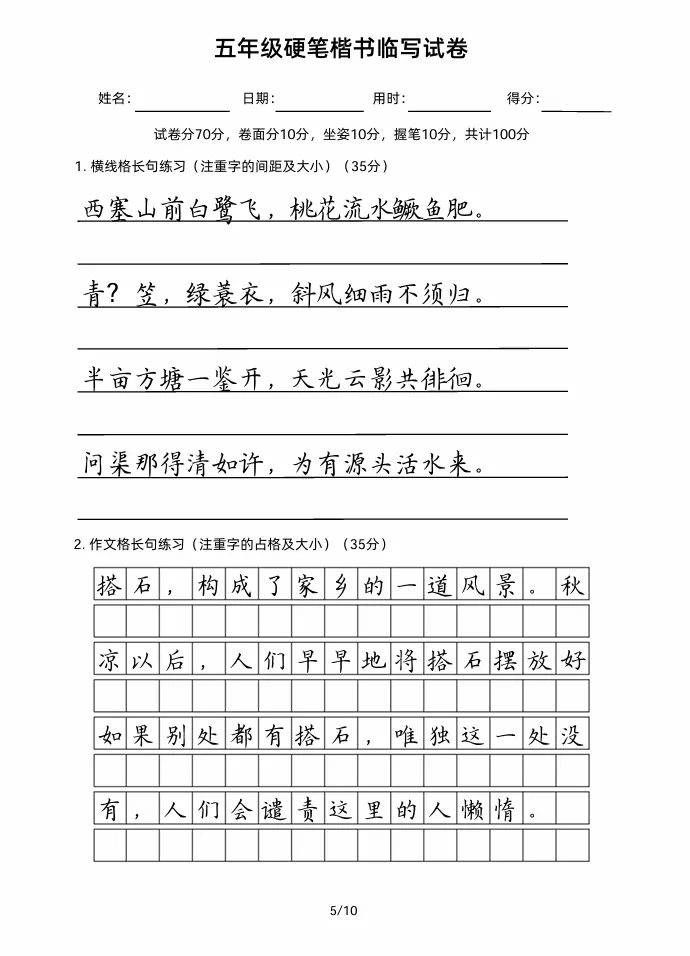 五年级硬笔楷书临写试卷
姓名： 日期： 用时： 得分：
试卷分70分，卷面分10分，坐姿10分，握笔10分，共计100分
1. 横线格长句练习（注重字的间距及大小）（35分）
西塞山前白鹭飞，桃花流水鳜鱼肥。
青？笠，绿蓑衣，斜风细雨不须归。
半亩方塘一鉴开，天光云影共徘徊。
问渠那得清如许，为有源头活水来。
2. 作文格长句练习（注重字的占格及大小）（35分）
搭石，构成了家乡的一道风景。秋
凉以后，人们早早地将搭石摆放好
如果别处都有搭石，唯独这一处没
有，人们会谴责这里的人懒惰。
5/10